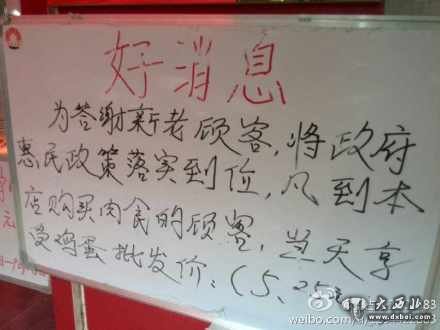 好消息
为答谢新老顾客,将政府
惠民政策落实到位,凡到本
店购买肉食的顾客,当天享
受鸡蛋批发价:(5.2
weibo.com/
大西北
www.dxbei.com